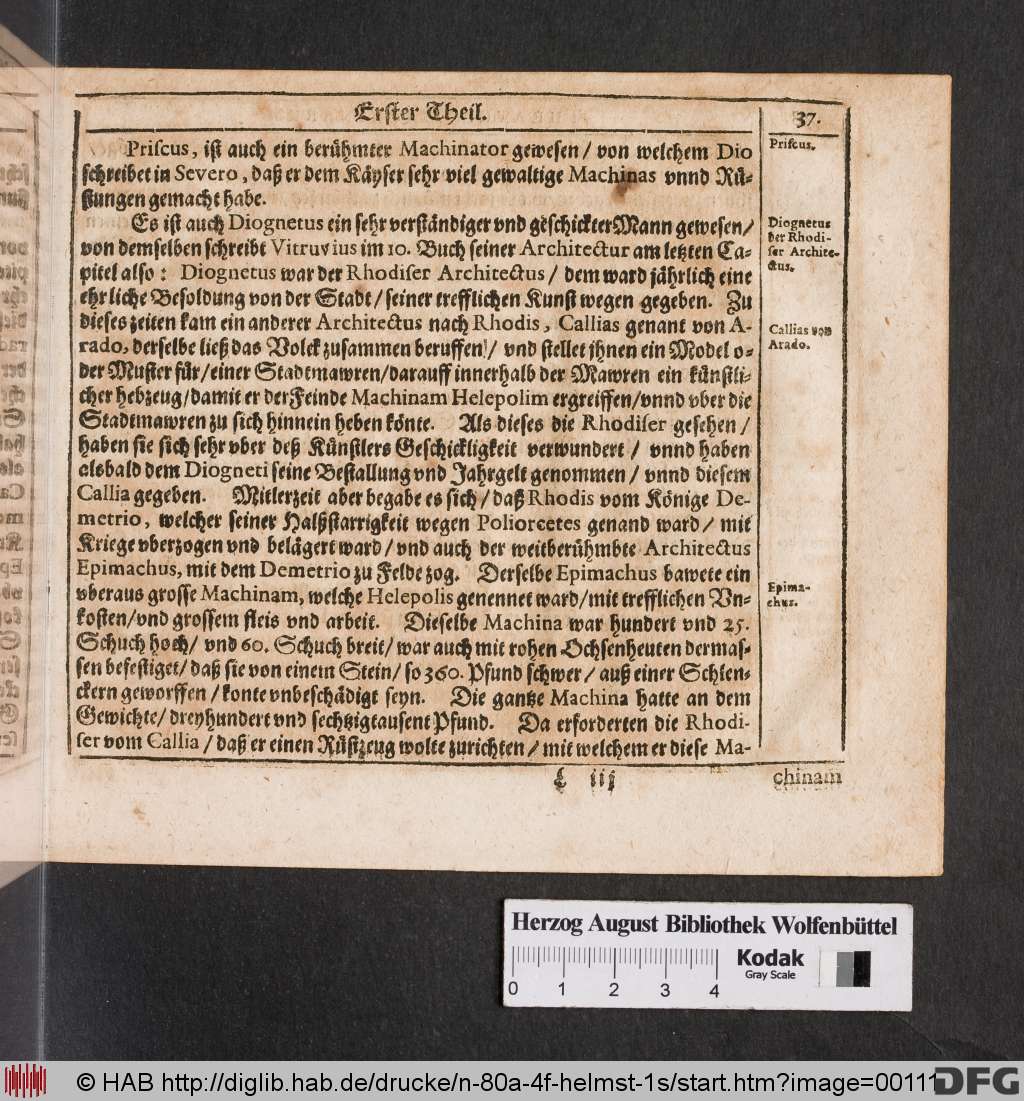 Erster Theil.
37.
Priſcus, iſt auch ein berühmter Machinator geweſen / von welchem Dio
ſchreibet in Severo, daß er dem Käyſer ſehr viel gewaltige Machinas vnnd Rü-
ſtungen gemacht habe.
Es iſt auch Diognetus ein ſehr verſtändiger vnd geſchickter Mann geweſen/
von demſelben ſchreibt Vitruvius im 10. Buch ſeiner Architectur am letzten Ca-
pitel alſo: Diognetus war der Rhodiſer Architectus / dem ward jährlich eine
ehrliche Beſoldung von der Stadt / ſeiner trefflichen Kunſt wegen gegeben. Zu
dieſes zeiten kam ein anderer Architectus nach Rhodis, Callias genant von A-
rado, derſelbe ließ das Volck zuſammen beruffen / vnd ſtellet jhnen ein Model o-
der Muſter für / einer Stadtmawren / darauff innerhalb der Mawren ein künſtli-
cher hebzeug / damit er der Feinde Machinam Helepolim ergreiffen / vnnd vber die
Stadtmawren zu ſich hinnein heben könte. Als dieſes die Rhodiſer geſehen /
haben ſie ſich ſehr vber deß Künſtlers Geſchickligkeit verwundert / vnnd haben
alsbald dem Diogneti ſeine Beſtallung vnd Jahrgelt genommen / vnnd dieſem
Callia gegeben. Mitlerzeit aber begabe es ſich / daß Rhodis vom Könige De-
metrio, welcher ſeiner Halßſtarrigkeit wegen Poliorcetes genand ward / mit
Kriege vberzogen vnd belägert ward / vnd auch der weitberühmbte Architectus
Epimachus, mit dem Demetrio zu Felde zog. Derſelbe Epimachus bawete ein
vberaus groſſe Machinam, welche Helepolis genennet ward / mit trefflichen Vn-
koſten / vnd groſſem fleis vnd arbeit. Dieſelbe Machina war hundert vnd 25.
Schuch hoch / vnd 60. Schuch breit / war auch mit rohen Ochſenheuten dermaſ-
ſen befeſtiget / daß ſie von einem Stein / ſo 360. Pfund ſchwer / auß einer Schlen-
ckern geworffen / konte vnbeſchädigt ſeyn. Die gantze Machina hatte an dem
Gewichte / dreyhundert vnd ſechtzigtauſent Pfund. Da erforderten die Rhodi-
ſer vom Callia / daß er einen Rüſtzeug wolte zurichten / mit welchem er dieſe Ma-
Priſcus.
Diognetus
der Rhodi-
ſer Archite-
ctus.
Callias von
Arado.
Epima-
chus.
iij
chinam
Herzog August Bibliothek Wolfenbüttel
Kodak
Gray Scale
0 1 2 3 4
© HAB http://diglib.hab.de/drucke/n-80a-4f-helmst-1s/start.htm?image=00111
DFG